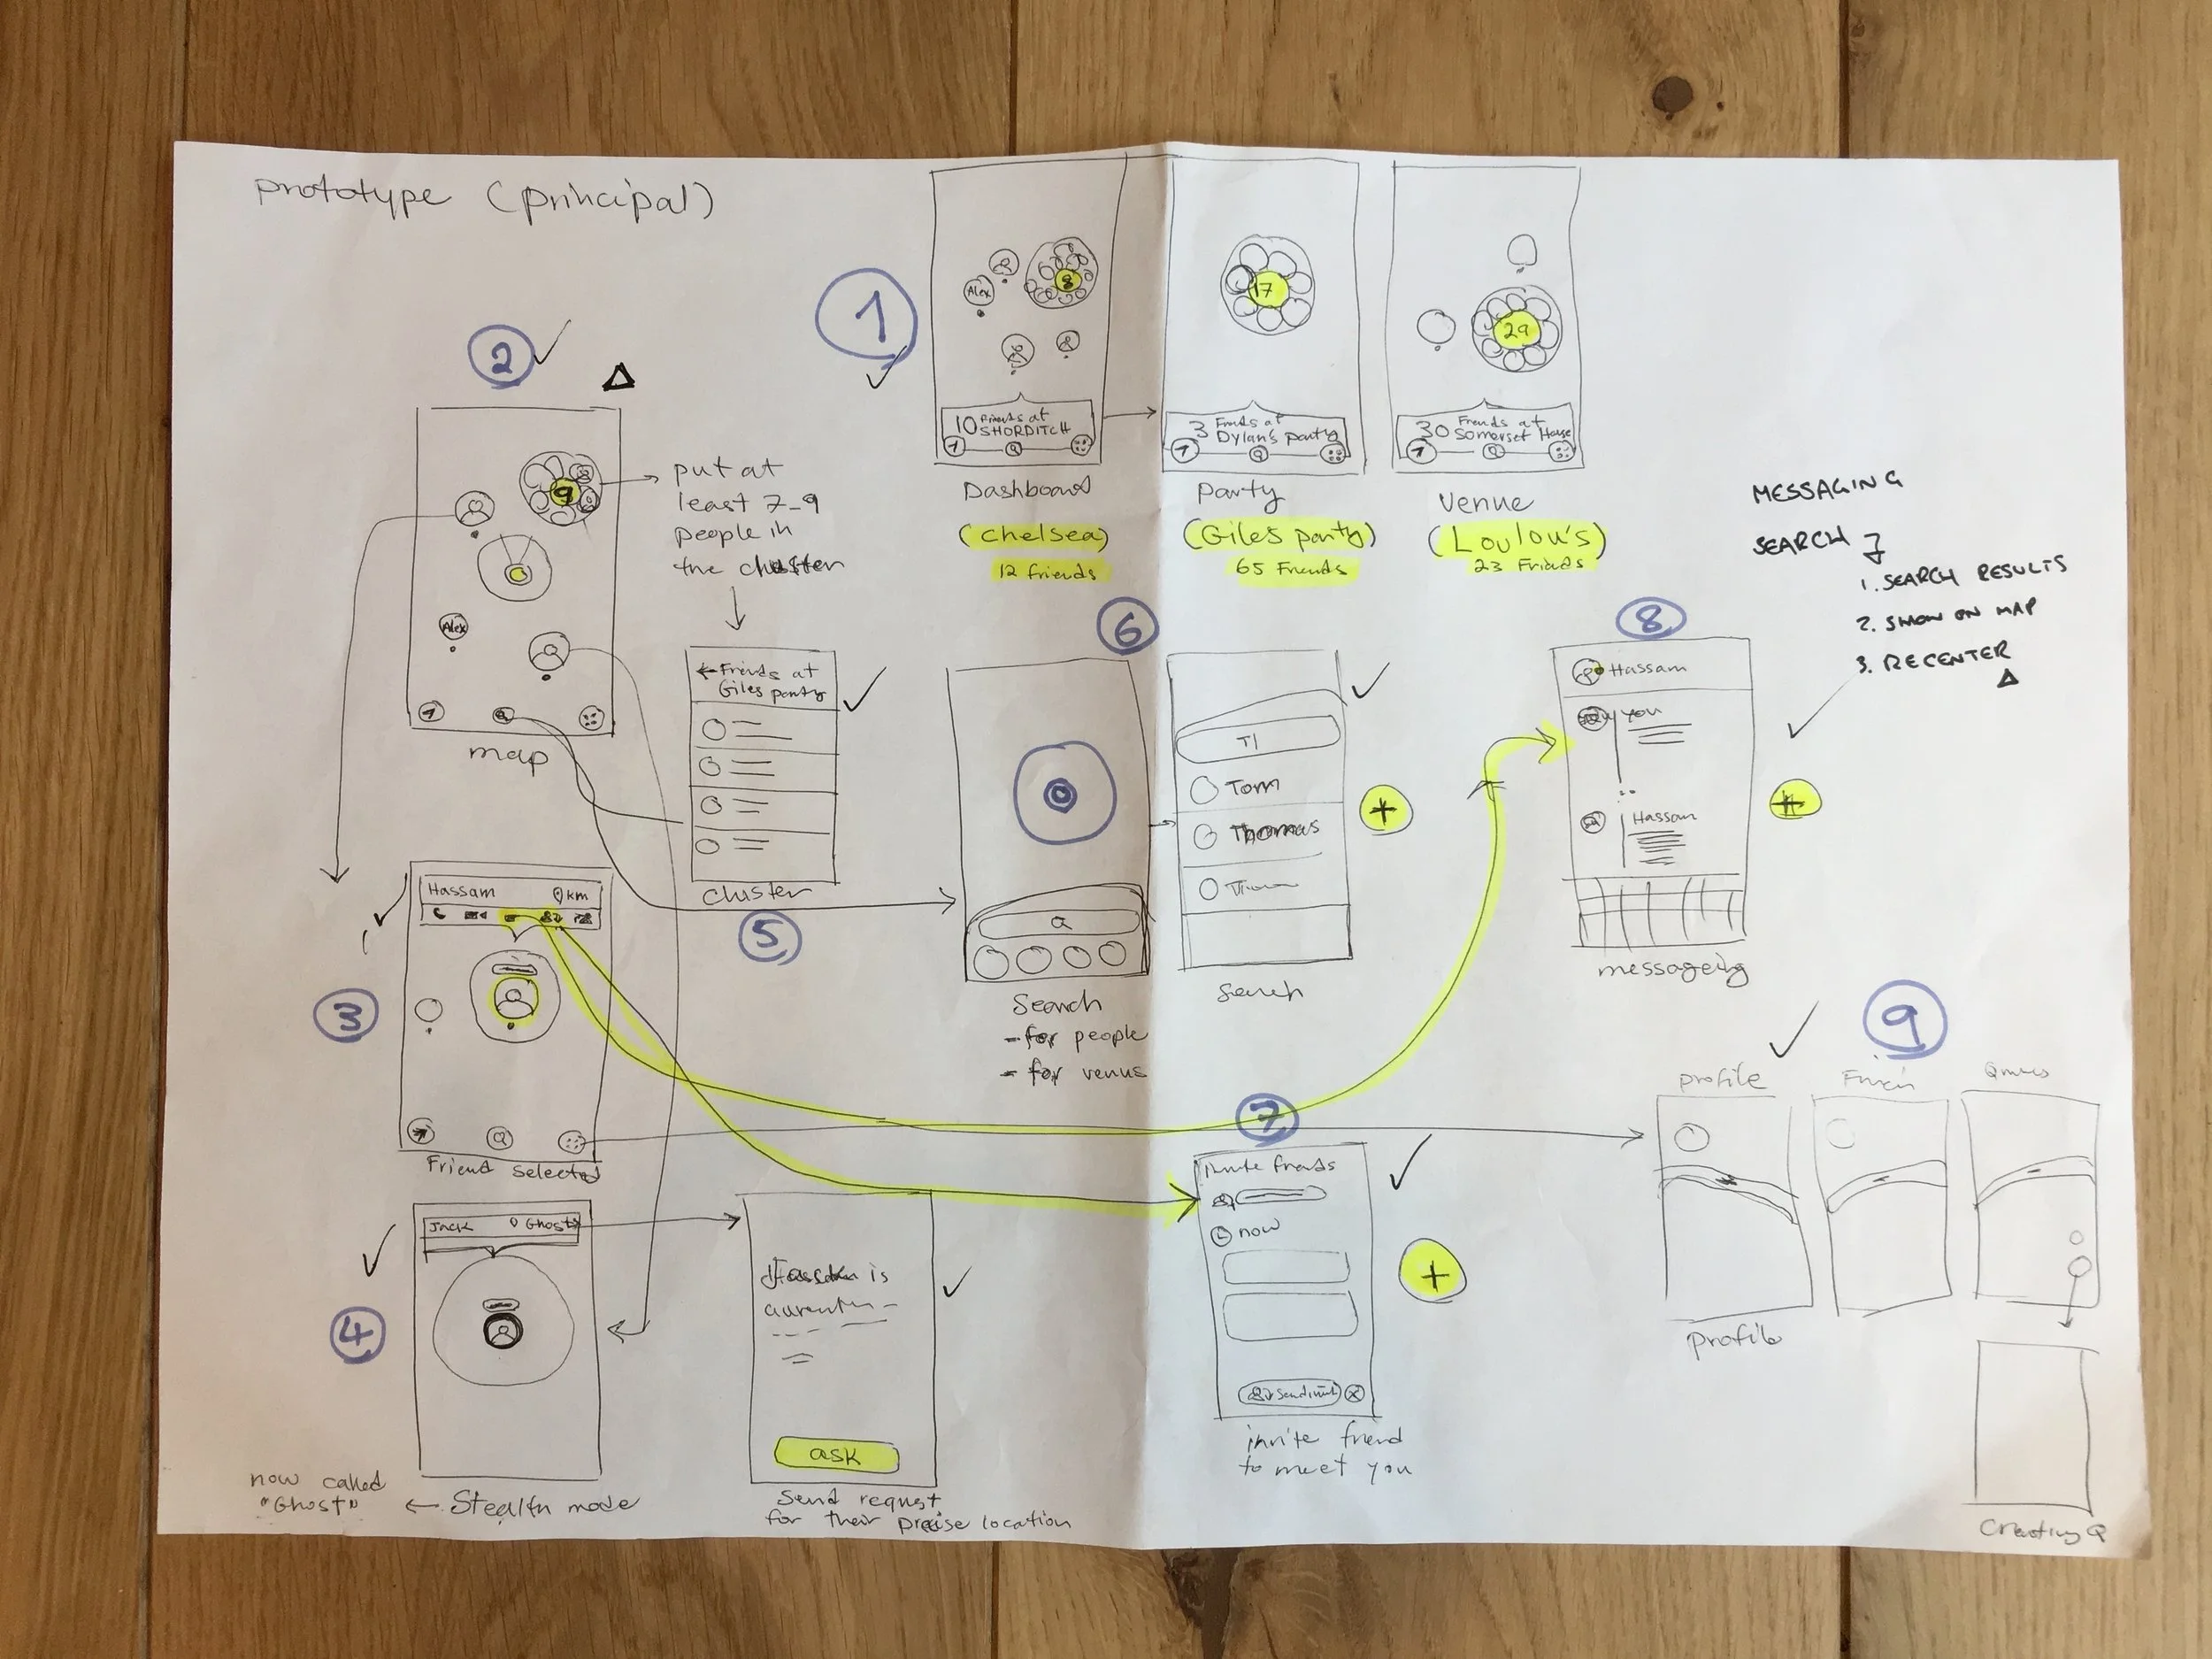 prototype (principal)
1
Alex
8
10 Friends at
SHORDITCH
Dashboard
(Chelsea)
12 friends
17
3 Friends at
Dylan's party
Party
(Giles party)
65 Friends
29
30 Friends at
Somerset House
Venue
(Loulou's)
23 Friends
2
9
Alex
map
put at
least 7-9
people in
the cluster
← Friends at
Giles party
cluster
5
6
Search
- for people
- for venus
Tom
Thomas
Search
+
MESSAGING
SEARCH
1. SEARCH RESULTS
2. SHOW ON MAP
3. RECENTER
8
Hassam
you
Hassam
messageing
3
Hassam
km
Friend selected
4
Jack
Ghost
now called
"Ghost"
← Stealth mode
is
ask
Send request
for their precise location
7
invite friends
now
+
invite friend
to meet you
9
profile
profile
Creating Q